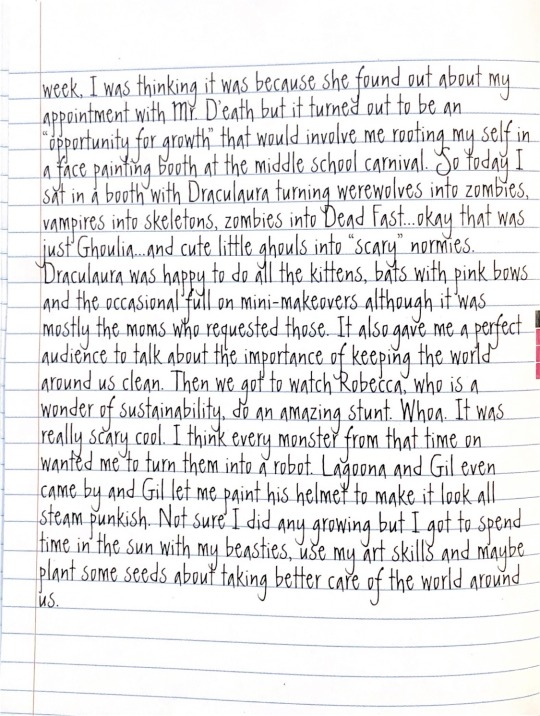 week. I was thinking it was because she found out about my
appointment with Mr. D'eath but it turned out to be an
"opportunity for growth" that would involve me rooting my self in
a face painting booth at the middle school carnival. So today I
sat in a booth with Draculaura turning werewolves into zombies,
vampires into skeletons, zombies into Dead Fast...okay that was
just Ghoulia...and cute little ghouls into "scary" normies.
Draculaura was happy to do all the kittens, bats with pink bows
and the occasional full on mini-makeovers although it was
mostly the moms who requested those. It also gave me a perfect
audience to talk about the importance of keeping the world
around us clean. Then we got to watch Robecca, who is a
wonder of sustainability, do an amazing stunt. Whoa. It was
really scary cool. I think every monster from that time on
wanted me to turn them into a robot. Lagoona and Gil even
came by and Gil let me paint his helmet to make it look all
steam punkish. Not sure I did any growing but I got to spend
time in the sun with my beasties, use my art skills and maybe
plant some seeds about taking better care of the world around
us.